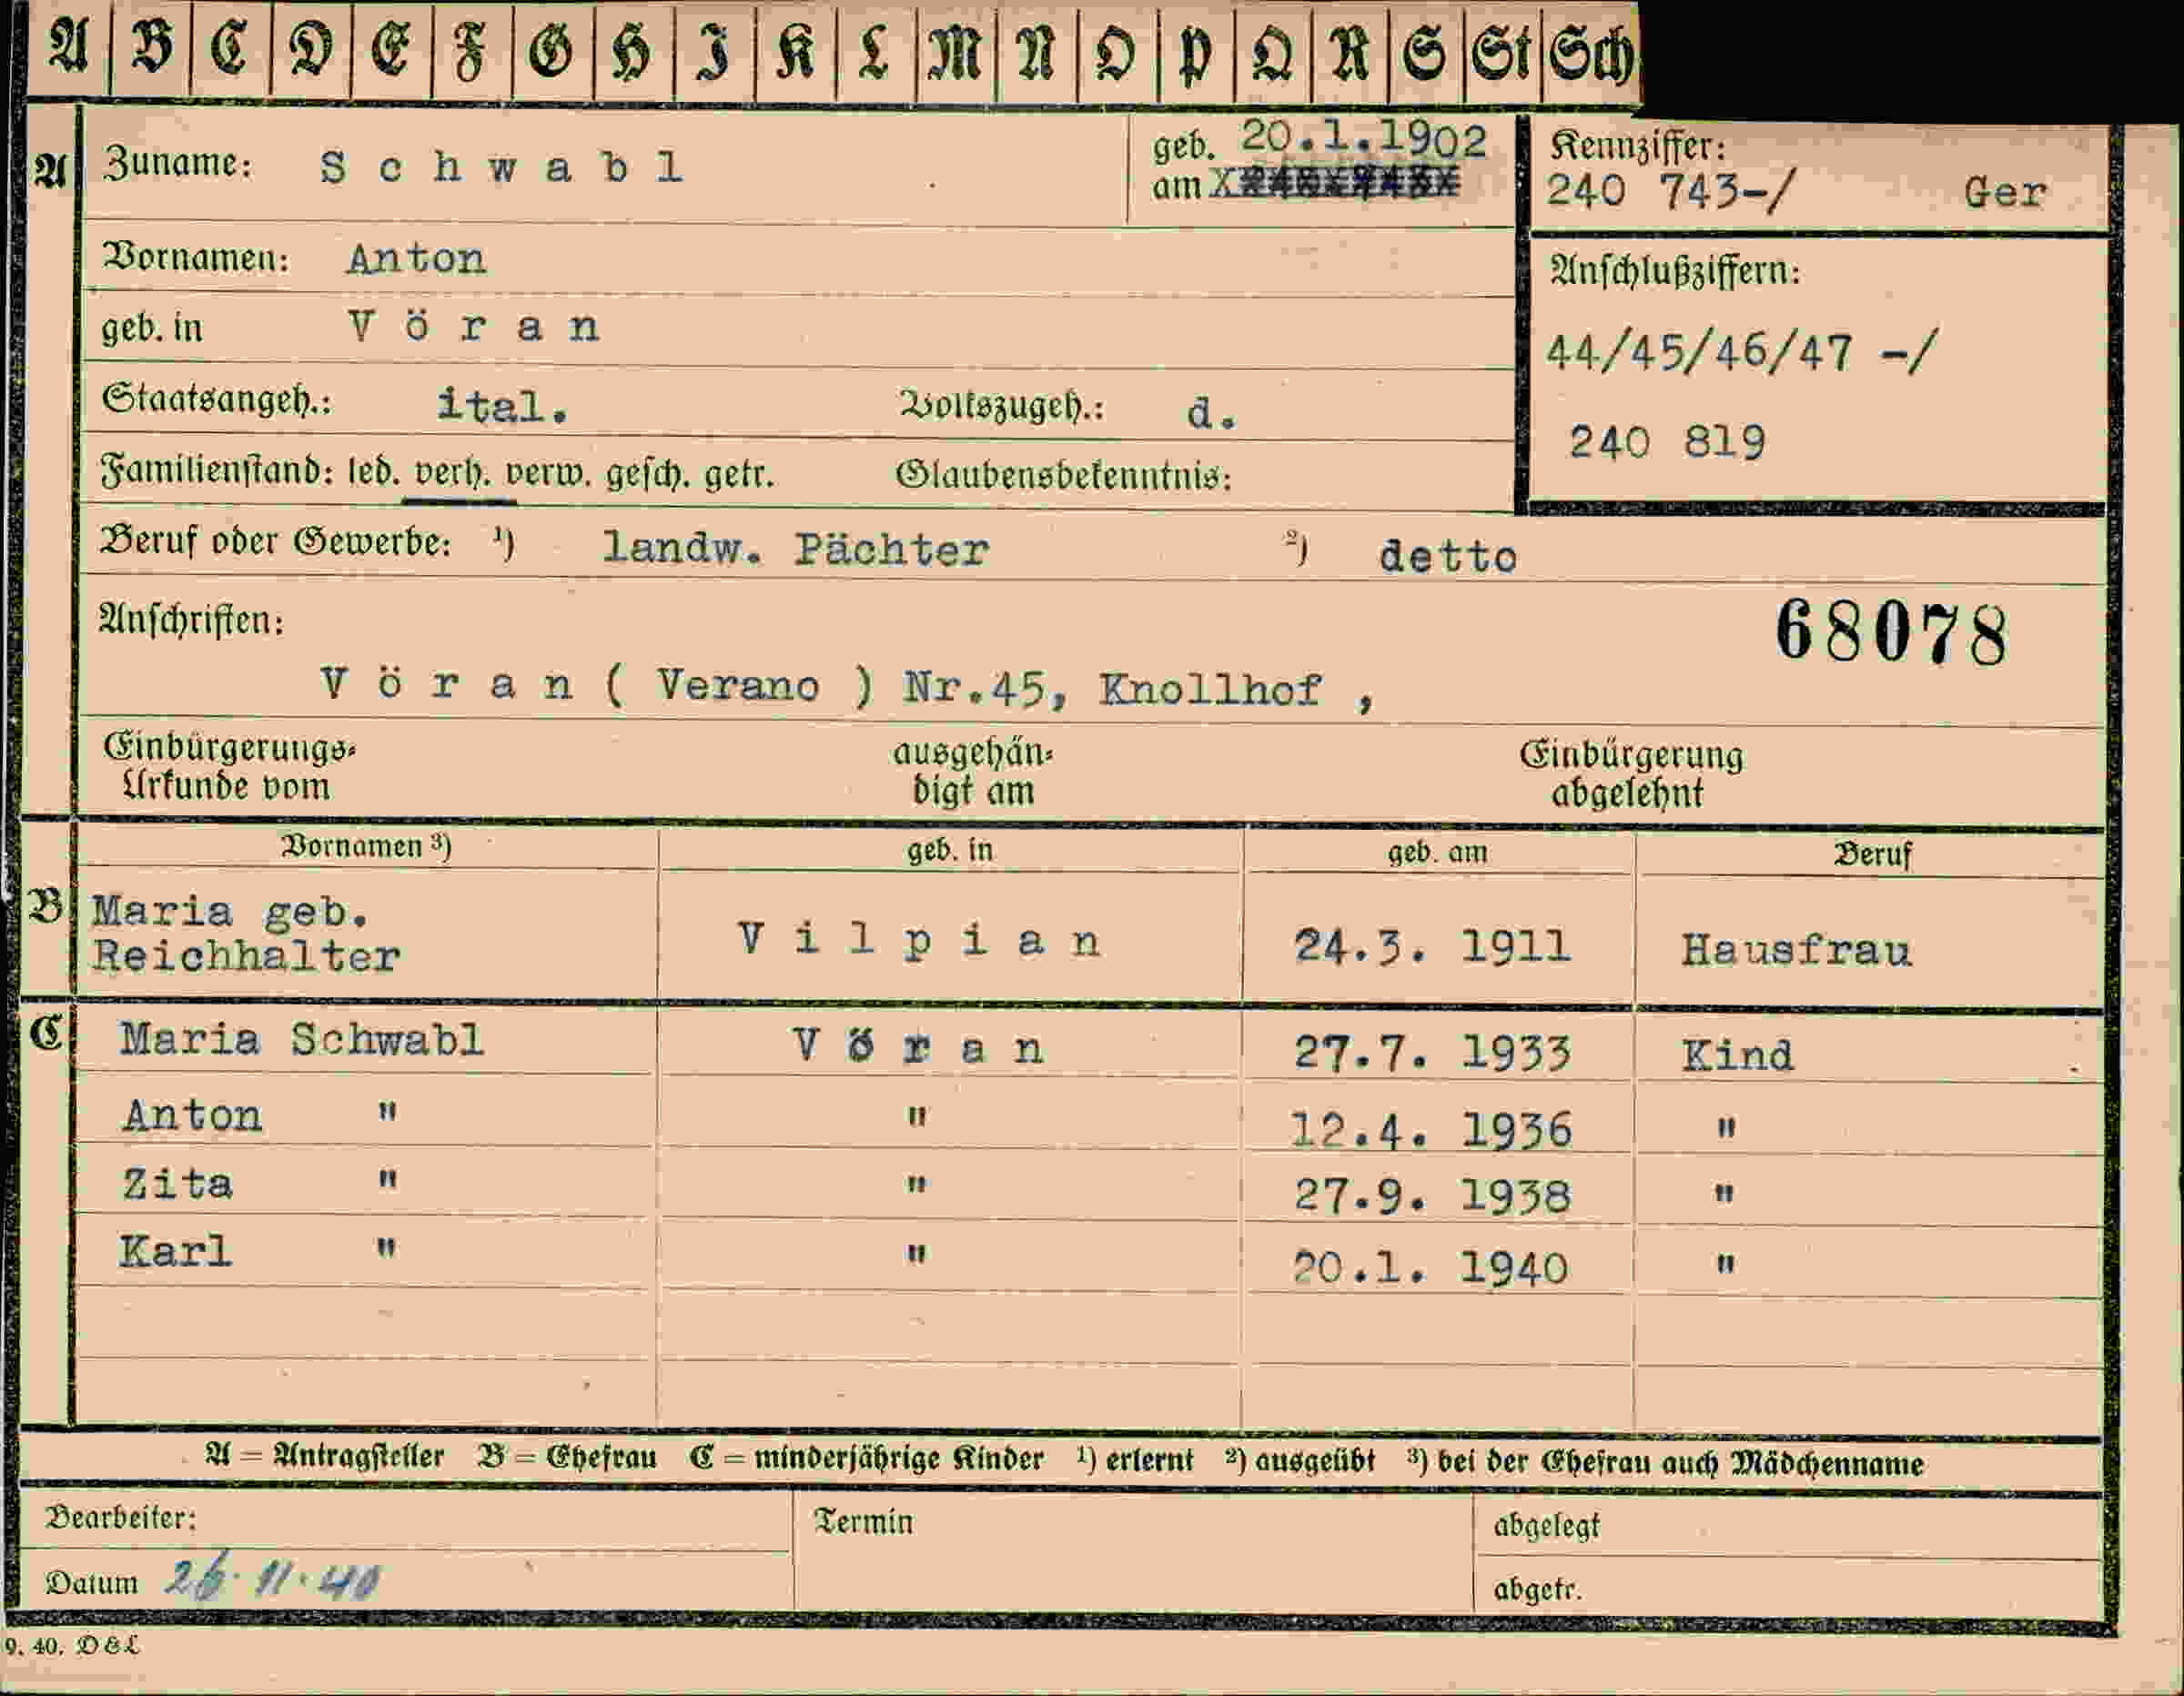 A B C D E F G H I K L M N O P Q R S St Sch
A Zuname: Schwabl geb. am 20.1.1902 Kennziffer: 240 743-/ Ger
Vornamen: Anton
geb. in Vöran
Anschlußziffern:
44/45/46/47 -/
240 819
Staatsangeh.: ital. Volkszugeh.: d.
Familienstand: led. verh. verw. gesch. getr. Glaubensbekenntnis:
Beruf oder Gewerbe: ¹) landw. Pächter ²) detto
Anschriften: 68078
Vöran ( Verano ) Nr.45, Knollhof ,
Einbürgerungs- ausgehän- Einbürgerung
Urkunde vom digt am abgelehnt
Vornamen ³) geb. in geb. am Beruf
B Maria geb.
Reichhalter Vilpian 24.3. 1911 Hausfrau
C Maria Schwabl Vöran 27.7. 1933 Kind
Anton " " 12.4. 1936 "
Zita " " 27.9. 1938 "
Karl " " 20.1. 1940 "
A = Antragsteller B = Ehefrau C = minderjährige Kinder ¹) erlernt ²) ausgeübt ³) bei der Ehefrau auch Mädchenname
Bearbeiter: Termin abgelegt
Datum 26.11.40 abgetr.
9. 40. D & L